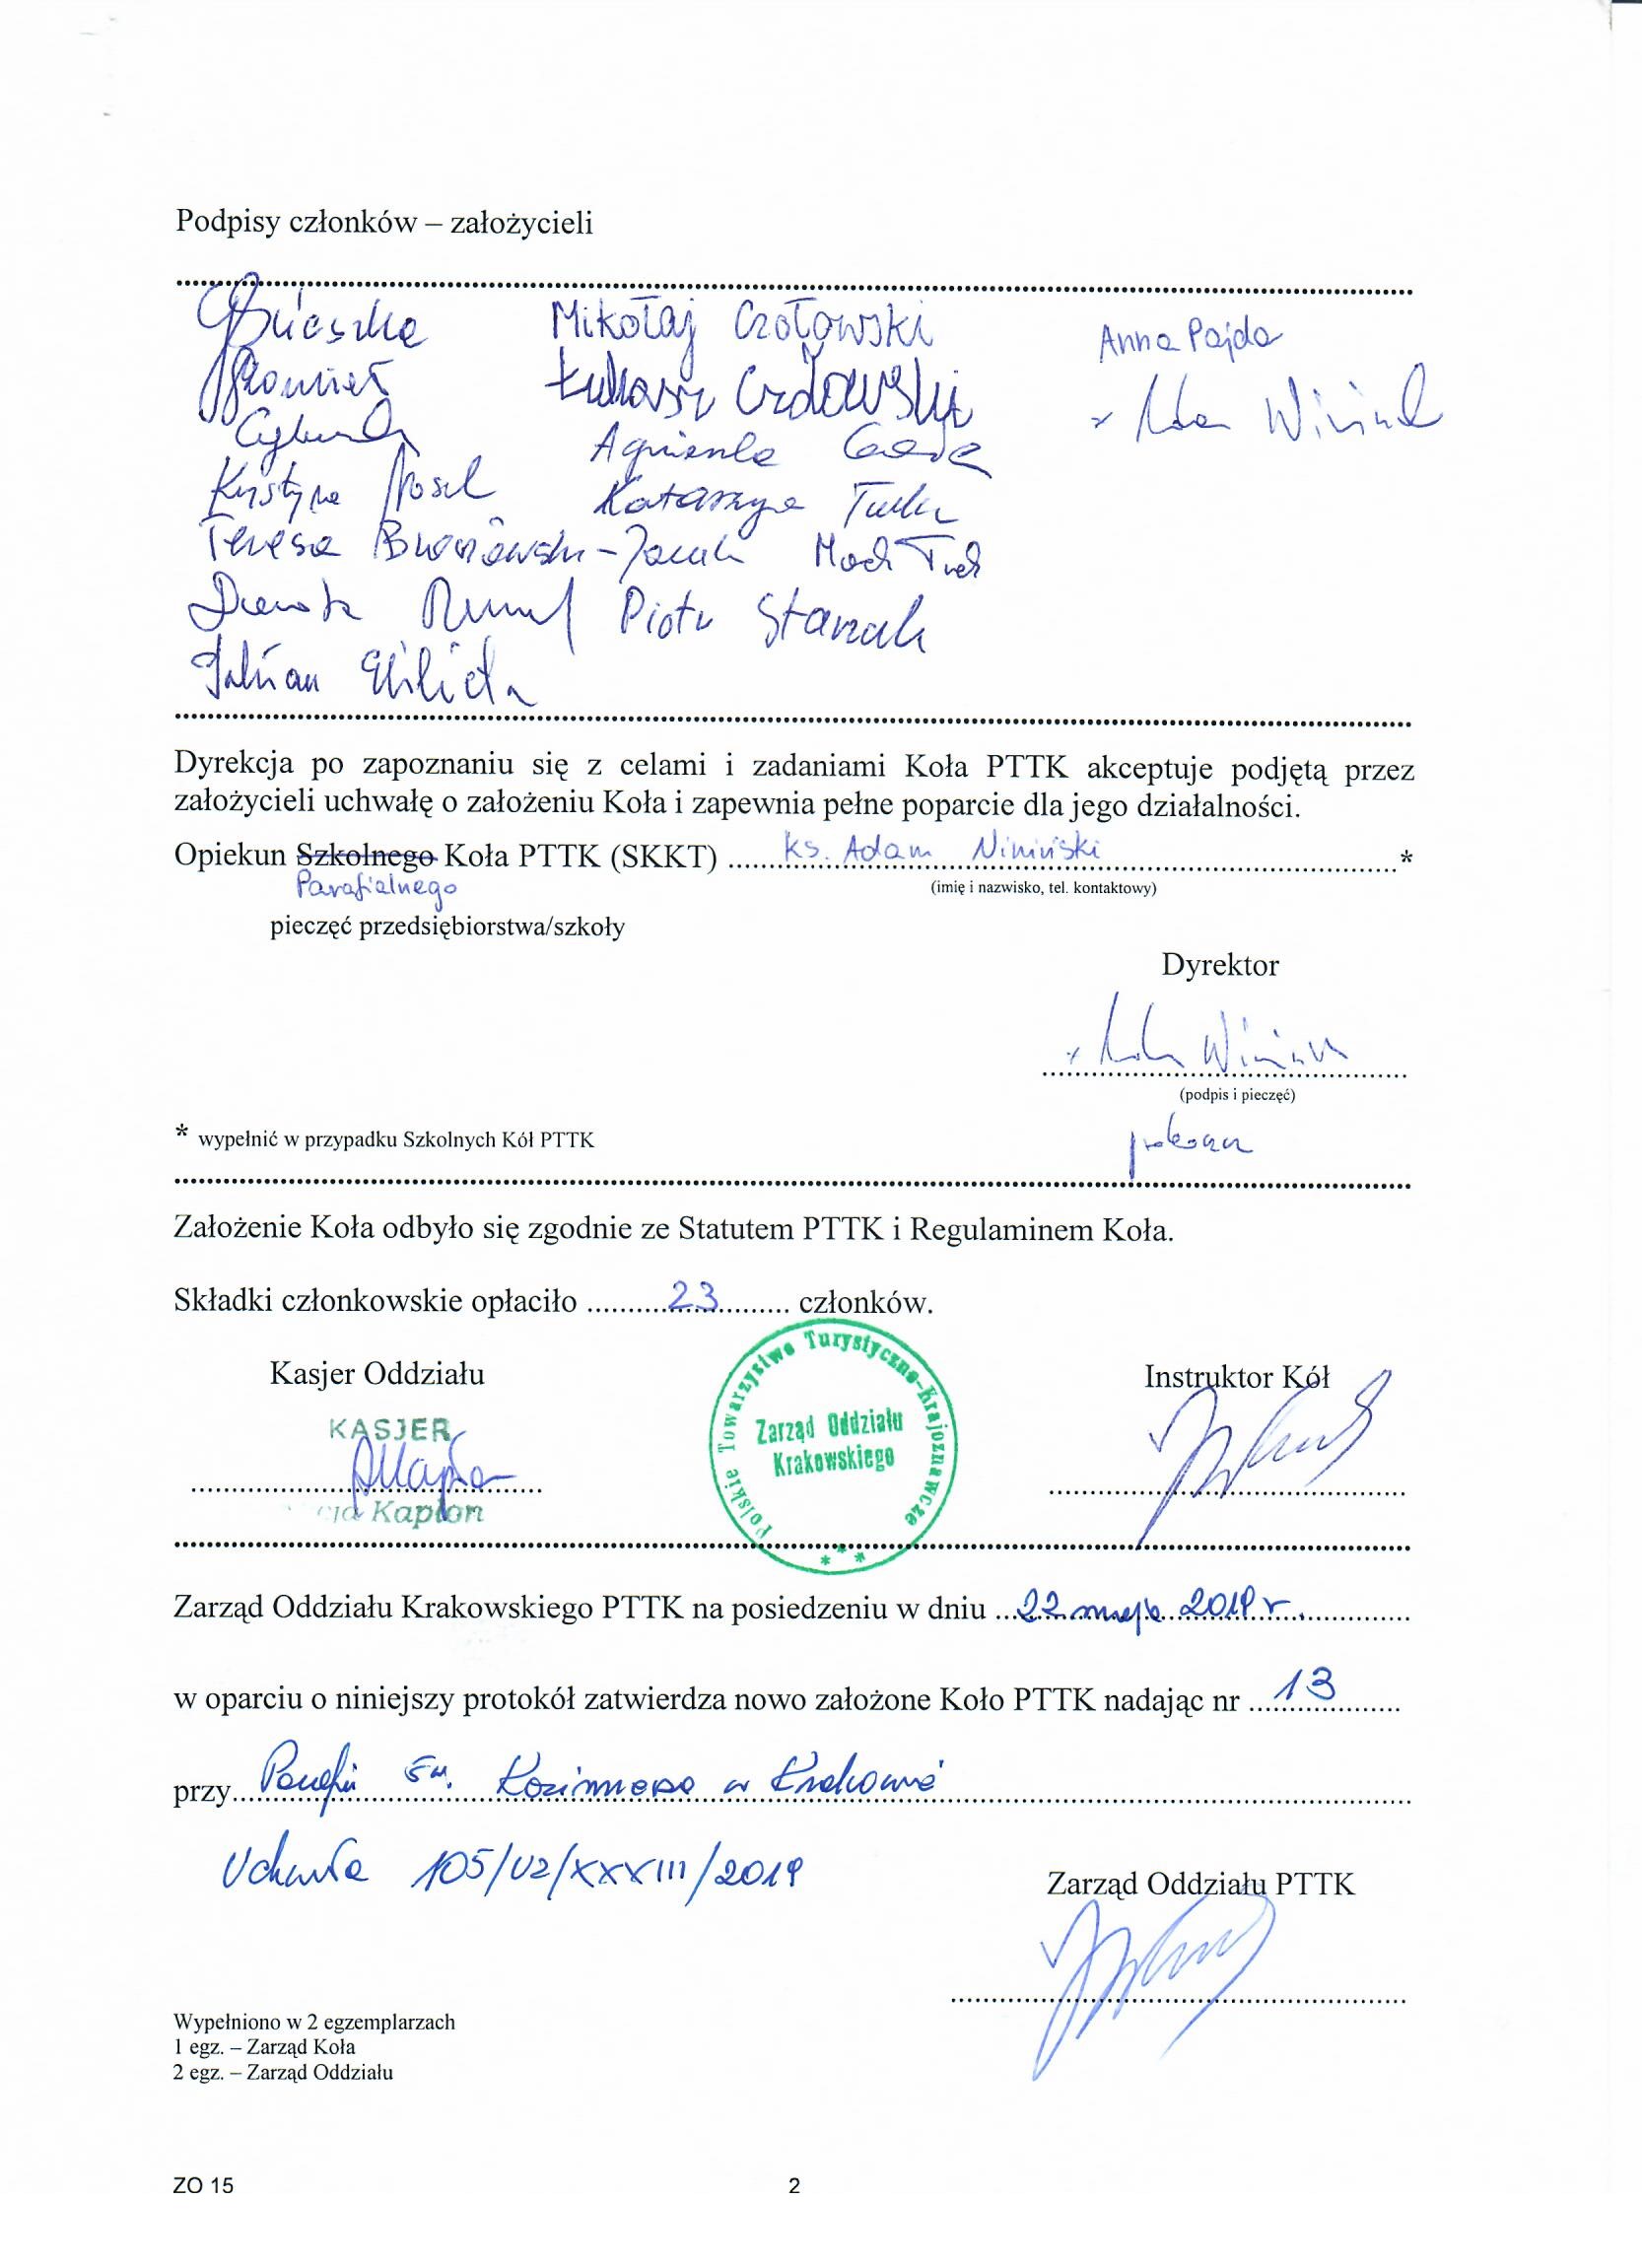 Podpisy członków – założycieli
Mikołaj Czołowski
Anna Pajda
Łukasz Czołowski
Krystyna
Katarzyna
Teresa
Piotr
Dyrekcja po zapoznaniu się z celami i zadaniami Koła PTTK akceptuje podjętą przez
założycieli uchwałę o założeniu Koła i zapewnia pełne poparcie dla jego działalności.
Opiekun Szkolnego Koła PTTK (SKKT) ks. Adam Niwiński *
Parafialnego
(imię i nazwisko, tel. kontaktowy)
pieczęć przedsiębiorstwa/szkoły
Dyrektor
(podpis i pieczęć)
* wypełnić w przypadku Szkolnych Kół PTTK
Założenie Koła odbyło się zgodnie ze Statutem PTTK i Regulaminem Koła.
Składki członkowskie opłaciło 23 członków.
Kasjer Oddziału
Instruktor Kół
KASJER
Kapłon
Polskie Towarzystwo Turystyczno-Krajoznawcze
Zarząd Oddziału
Krakowskiego
* * *
Zarząd Oddziału Krakowskiego PTTK na posiedzeniu w dniu 22 maja 2019 r.
w oparciu o niniejszy protokół zatwierdza nowo założone Koło PTTK nadając nr 13
przy Parafii św. Kazimierza w Krakowie
Uchwała 105/U2/XXXIII/2019
Zarząd Oddziału PTTK
Wypełniono w 2 egzemplarzach
1 egz. – Zarząd Koła
2 egz. – Zarząd Oddziału
ZO 15
2